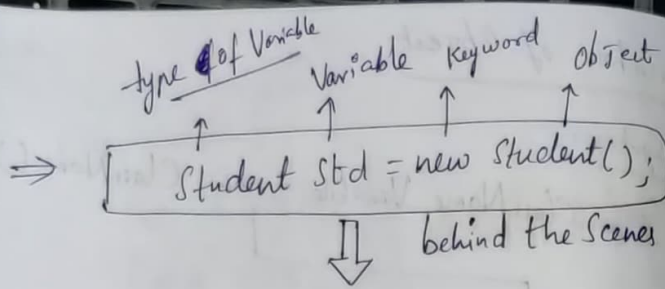 type of Variable Variable Keyword Object
⇒ Student Std = new Student();
behind the Scenes